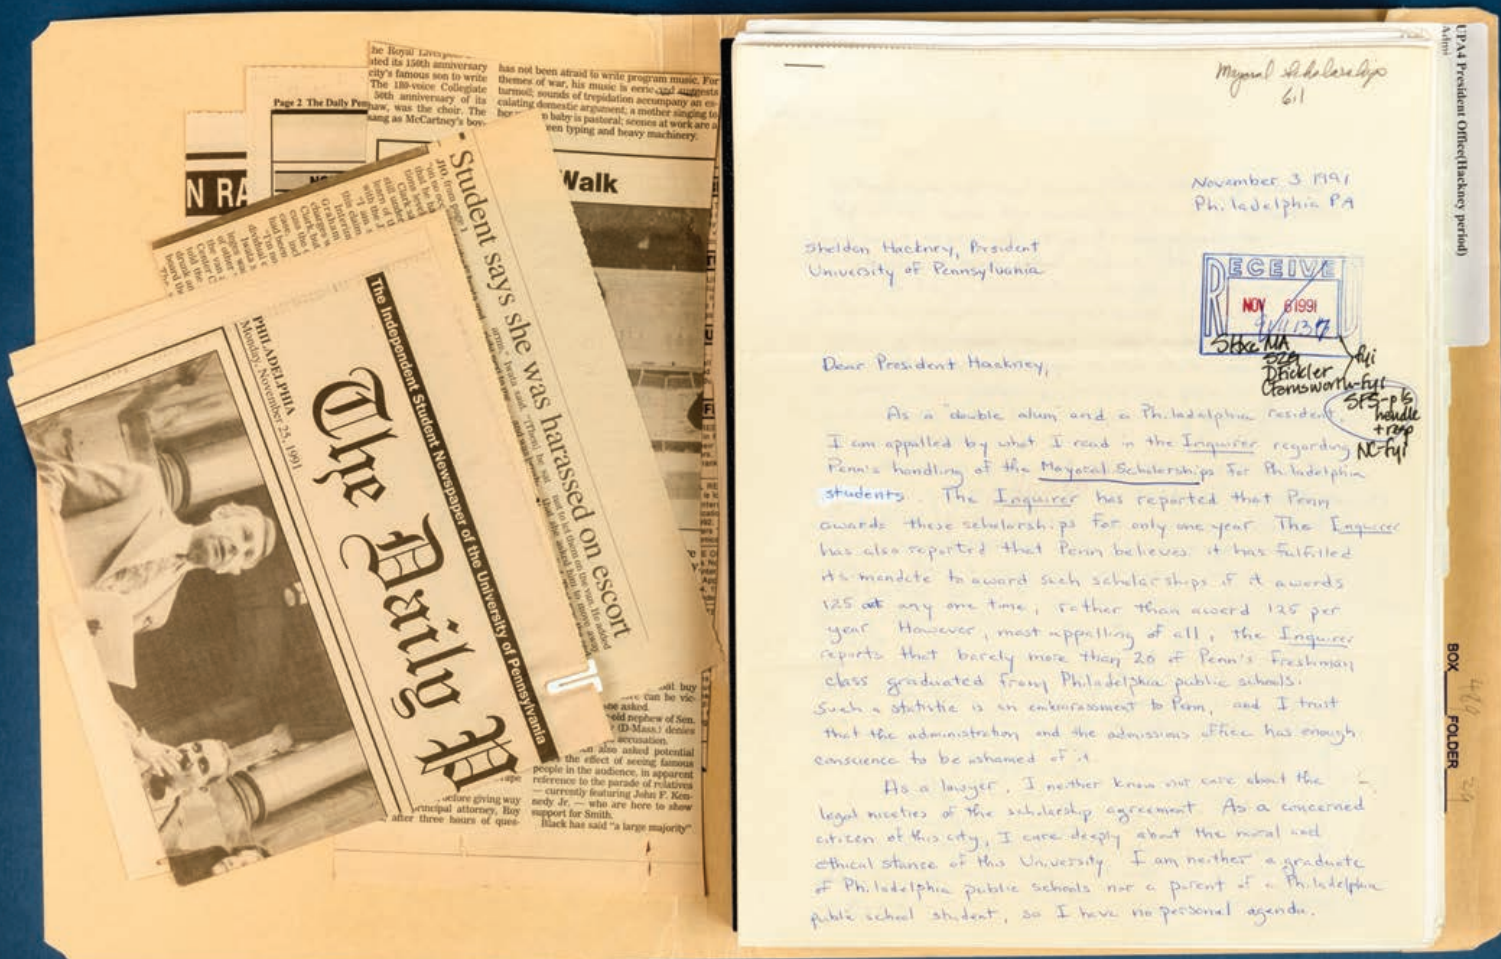 he Royal Liverpool
ated its 150th anniversary
city's famous son to write
The 180-voice Collegiate
50th anniversary of its
haw, was the choir. The
sang as McCartney's boy-
has not been afraid to write program music. For
themes of war, his music is eerie and suggests
turmoil; sounds of trepidation accompany an es-
calating domestic argument; a mother singing to
baby is pastoral; scenes at work are a
een typing and heavy machinery.
Page 2 The Daily Pen
N RA
Walk
Student says she was harassed on escort
JIO, from page 1
The Independent Student Newspaper of the University of Pennsylvania
The Daily P
PHILADELPHIA
Monday, November 25, 1991
buy
can be vic-
asked.
old nephew of Sen.
(D-Mass.) denies
accusation.
also asked potential
the effect of seeing famous
people in the audience, in apparent
reference to the parade of relatives
— currently featuring John F. Ken-
nedy Jr. — who are here to show
support for Smith.
Black has said "a large majority"
before giving way
principal attorney, Roy
after three hours of ques-
Mayoral Scholarships
6.1
November 3 1991
Philadelphia PA
Sheldon Hackney, President
University of Pennsylvania
RECEIVED
NOV 6 1991
Dear President Hackney,
DFickler
fyi
CFarnsworth-fyi
SFS-pls
handle
+ resp
NC-fyi
As a "double alum" and a Philadelphia resident,
I am appalled by what I read in the Inquirer regarding
Penn's handling of the Mayoral Scholarships for Philadelphia
students. The Inquirer has reported that Penn
awards these scholarships for only one year. The Inquirer
has also reported that Penn believes it has fulfilled
its mandate to award such scholarships if it awards
125 at any one time, rather than award 125 per
year. However, most appalling of all, the Inquirer
reports that barely more than 20 of Penn's Freshman
class graduated from Philadelphia public schools.
Such a statistic is an embarrassment to Penn, and I trust
that the administration and the admissions office has enough
conscience to be ashamed of it.
As a lawyer, I neither know nor care about the
legal niceties of the scholarship agreement. As a concerned
citizen of this city, I care deeply about the moral and
ethical stance of this University. I am neither a graduate
of Philadelphia public schools nor a parent of a Philadelphia
public school student, so I have no personal agenda.
UPA4 President Office(Hackney period)
Admi
BOX
FOLDER